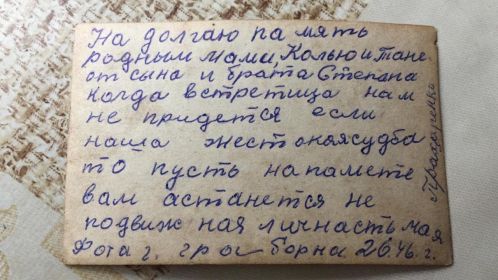 На долгаю па мять
родным мами, Колью и Тане
от сына и брата Степана
когда встретица нам
не придется если
наша жестокаясудба
то пусть напамете
вам астанется не
подвиж ная личнасть мая
Фота г. гра борна 26.46. г.